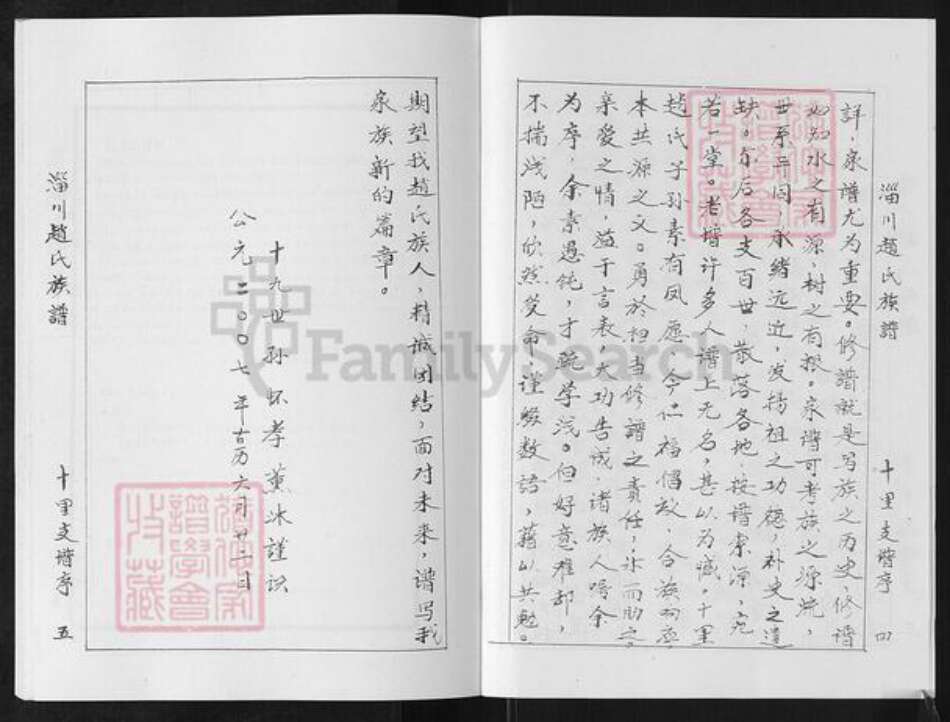 淄川趙氏族譜
十里支譜序 四
詳，家譜尤为重要。修譜就是写族之历史，修譜
如知水之有源，树之有根。家譜可考族之源流，
世系异同，承绪远近，发扬祖之功德，补史之遗
缺。尔后各支百世，散落各地，按譜索源，宛
若一堂。若增许多人譜上无名，甚以为憾。十里
趙氏子孙素有夙愿，今仁福倡故，合族响应
本共源之义。勇於担当修譜之责任，
亲爱之情，益于言表，大功告成，诸族人嘱余
为序，余素愚钝，才疏学浅。但好意难却，
不揣浅陋，欣然受命谨缀数语，藉以共勉。
期望我趙氏族人，精诚团结，面对未来，谱写我
家族新的篇章。
十九世孙 怀孝薰沐謹识
公元二〇〇七年古历六月廿二日
淄川趙氏族譜
十里支譜序 五
FamilySearch